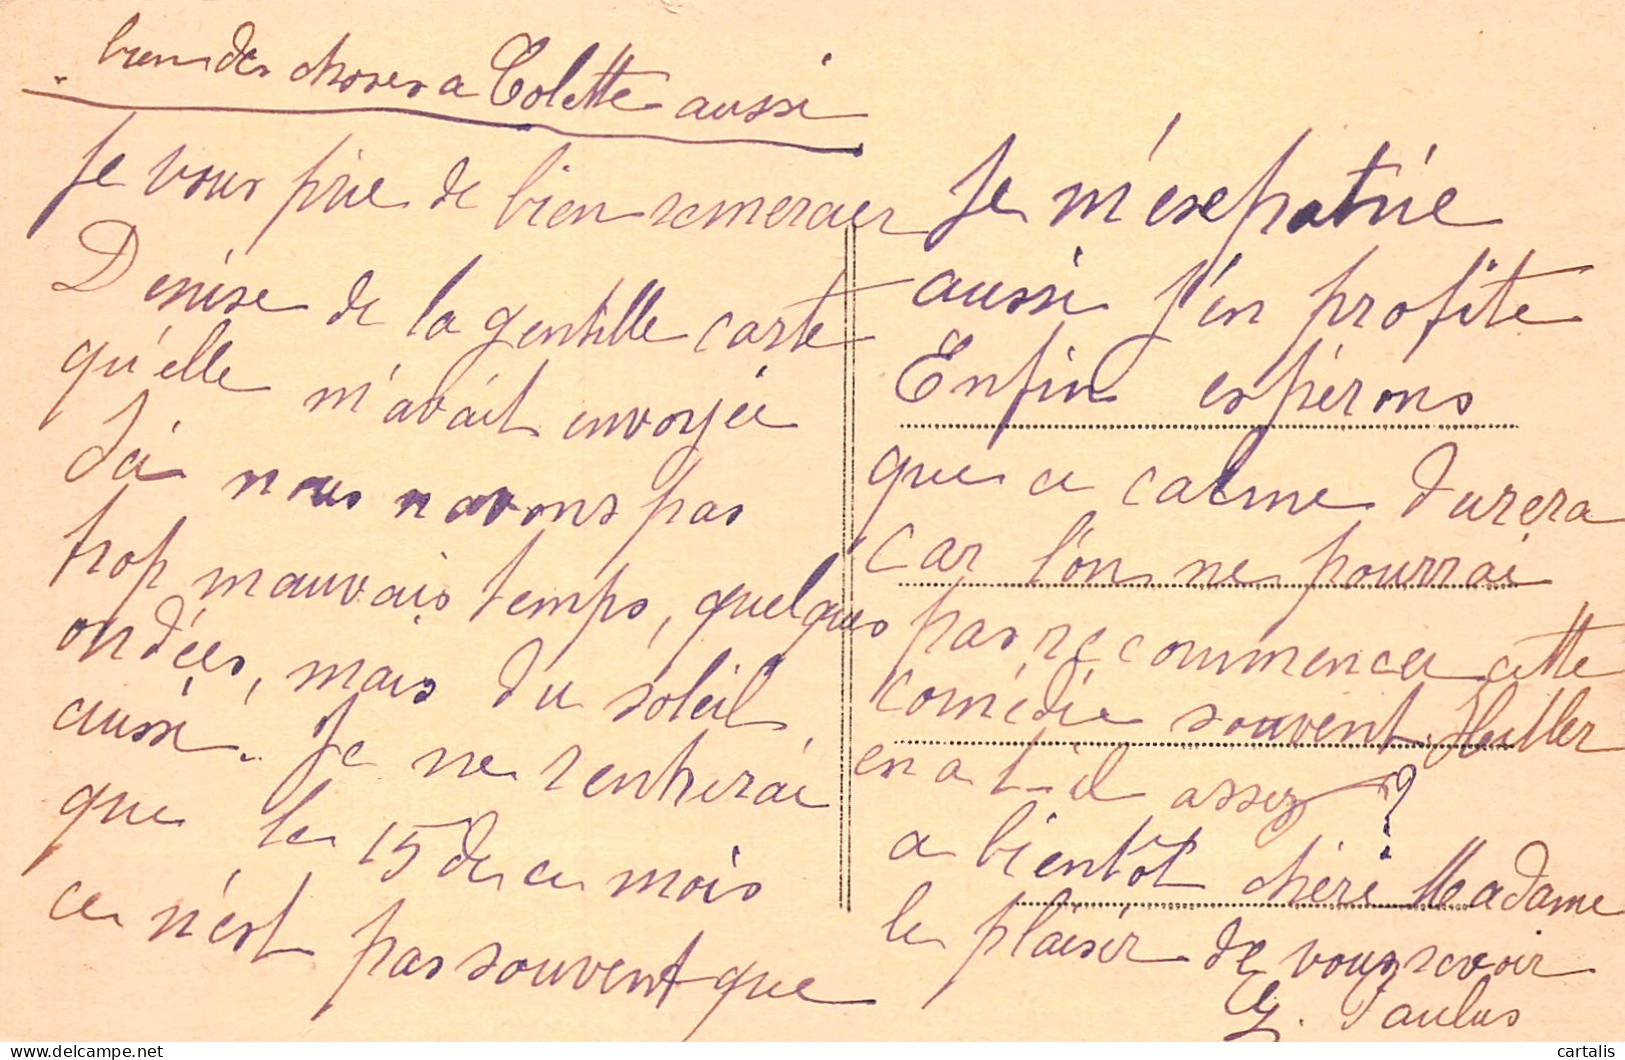 bien des choses a Colette aussi
Je vous prie de bien remercier
Denise de la gentille carte
qu'elle m'avait envoyée
Ici nous navons pas
trop mauvais temps, quelques
ondées, mais du soleil
aussi. Je ne rentrerai
que le 15 de ce mois
ce n'est pas souvent que
Je m'expatrie
aussi j'en profite
Enfin espérons
que ce calme durera
car l'on ne pourrai
pas recommencer cette
comédie souvent. Hittler
en a t-il assez ?
a bientôt chère Madame
le plaisir de vous revoir
G. Paulus
cartalis